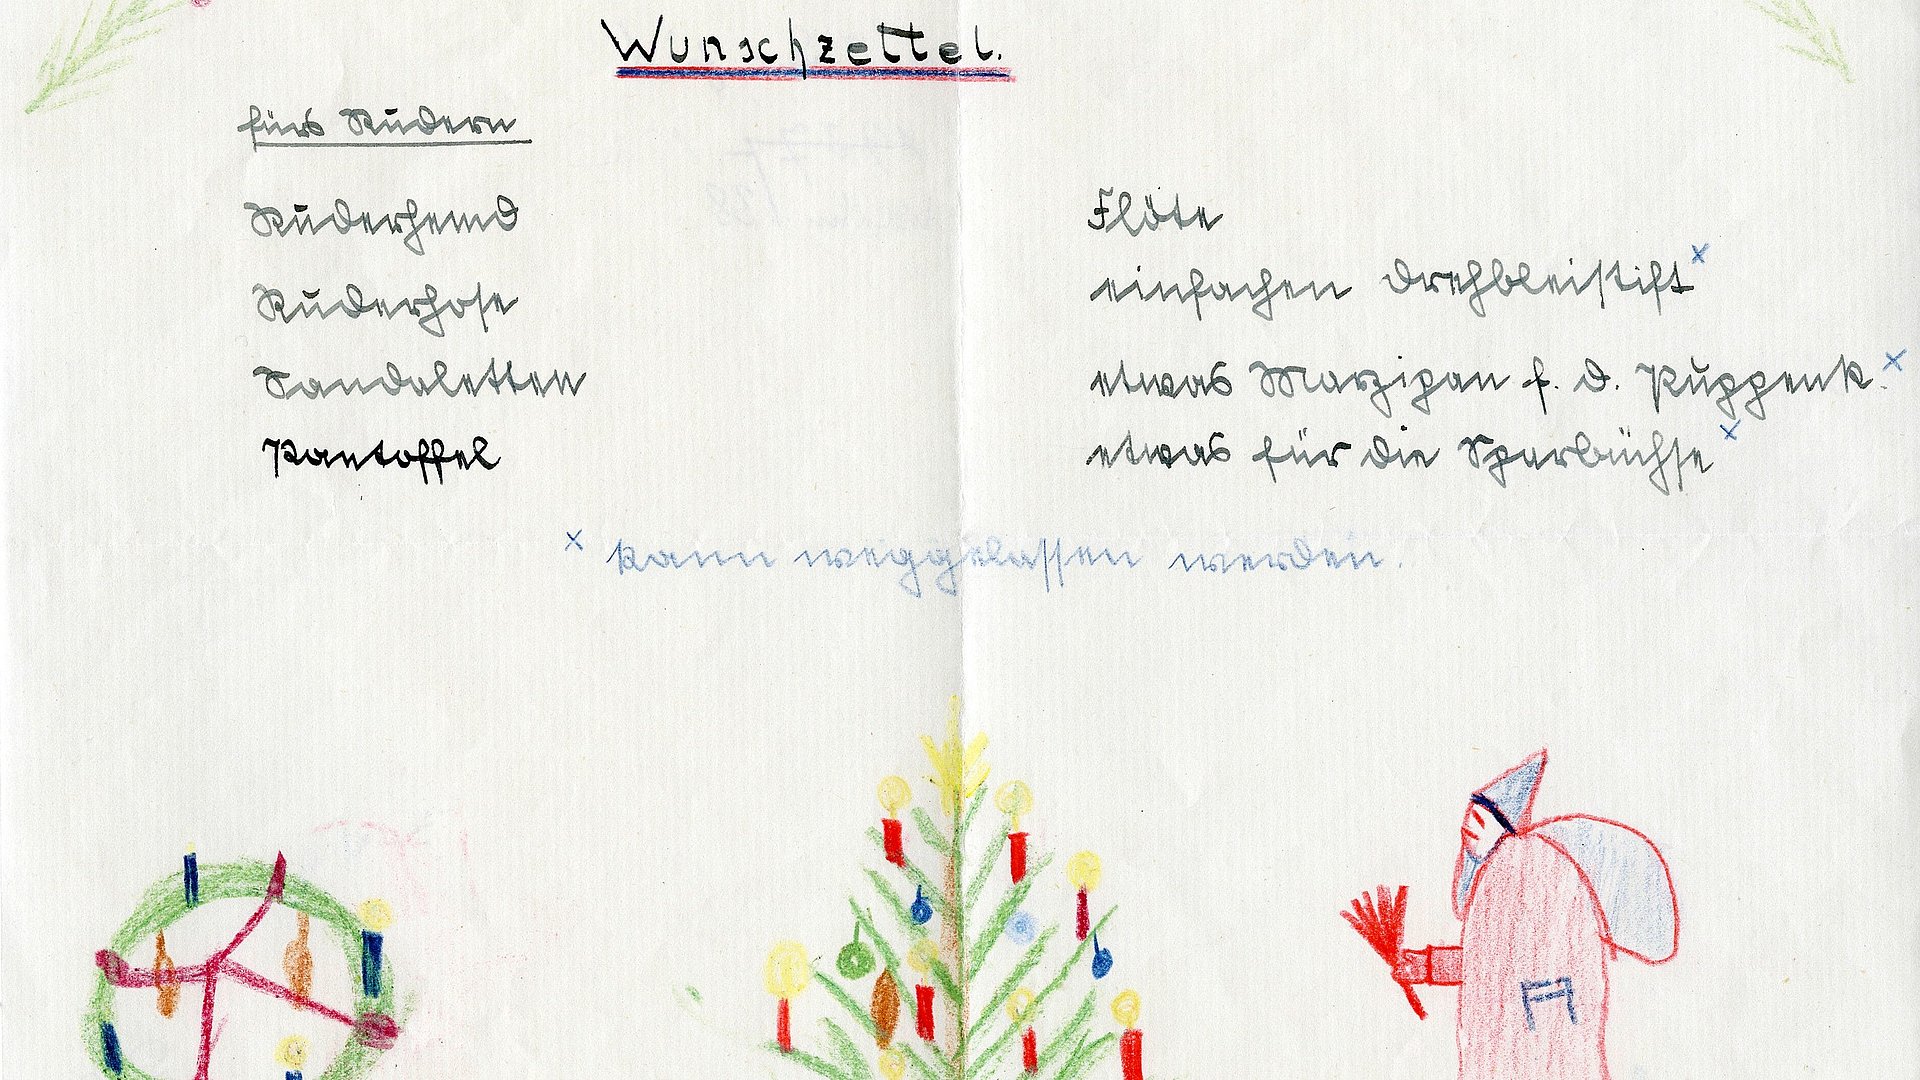 Wunschzettel.
fürs Rudern
Ruderhemd
Ruderhose
Sandaletten
Pantoffel
Flöte
einfachen Drehbleistift x
etwas Marzipan f. d. Puppenk. x
etwas für die Sparbüchse x
x kann weggelassen werden.